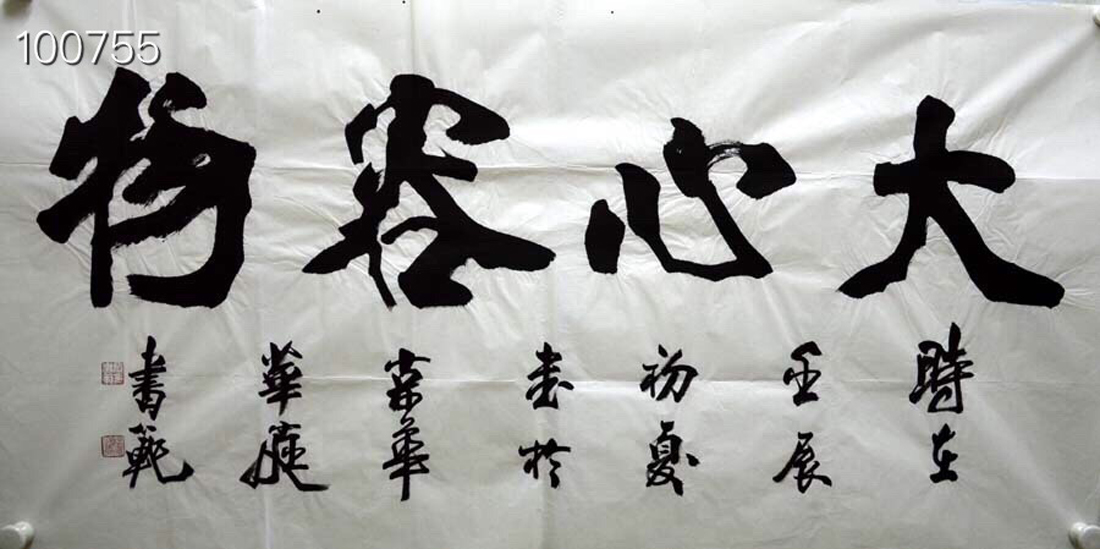 100755
大心容物
時在
壬辰
初夏
書於
京華
華
書範